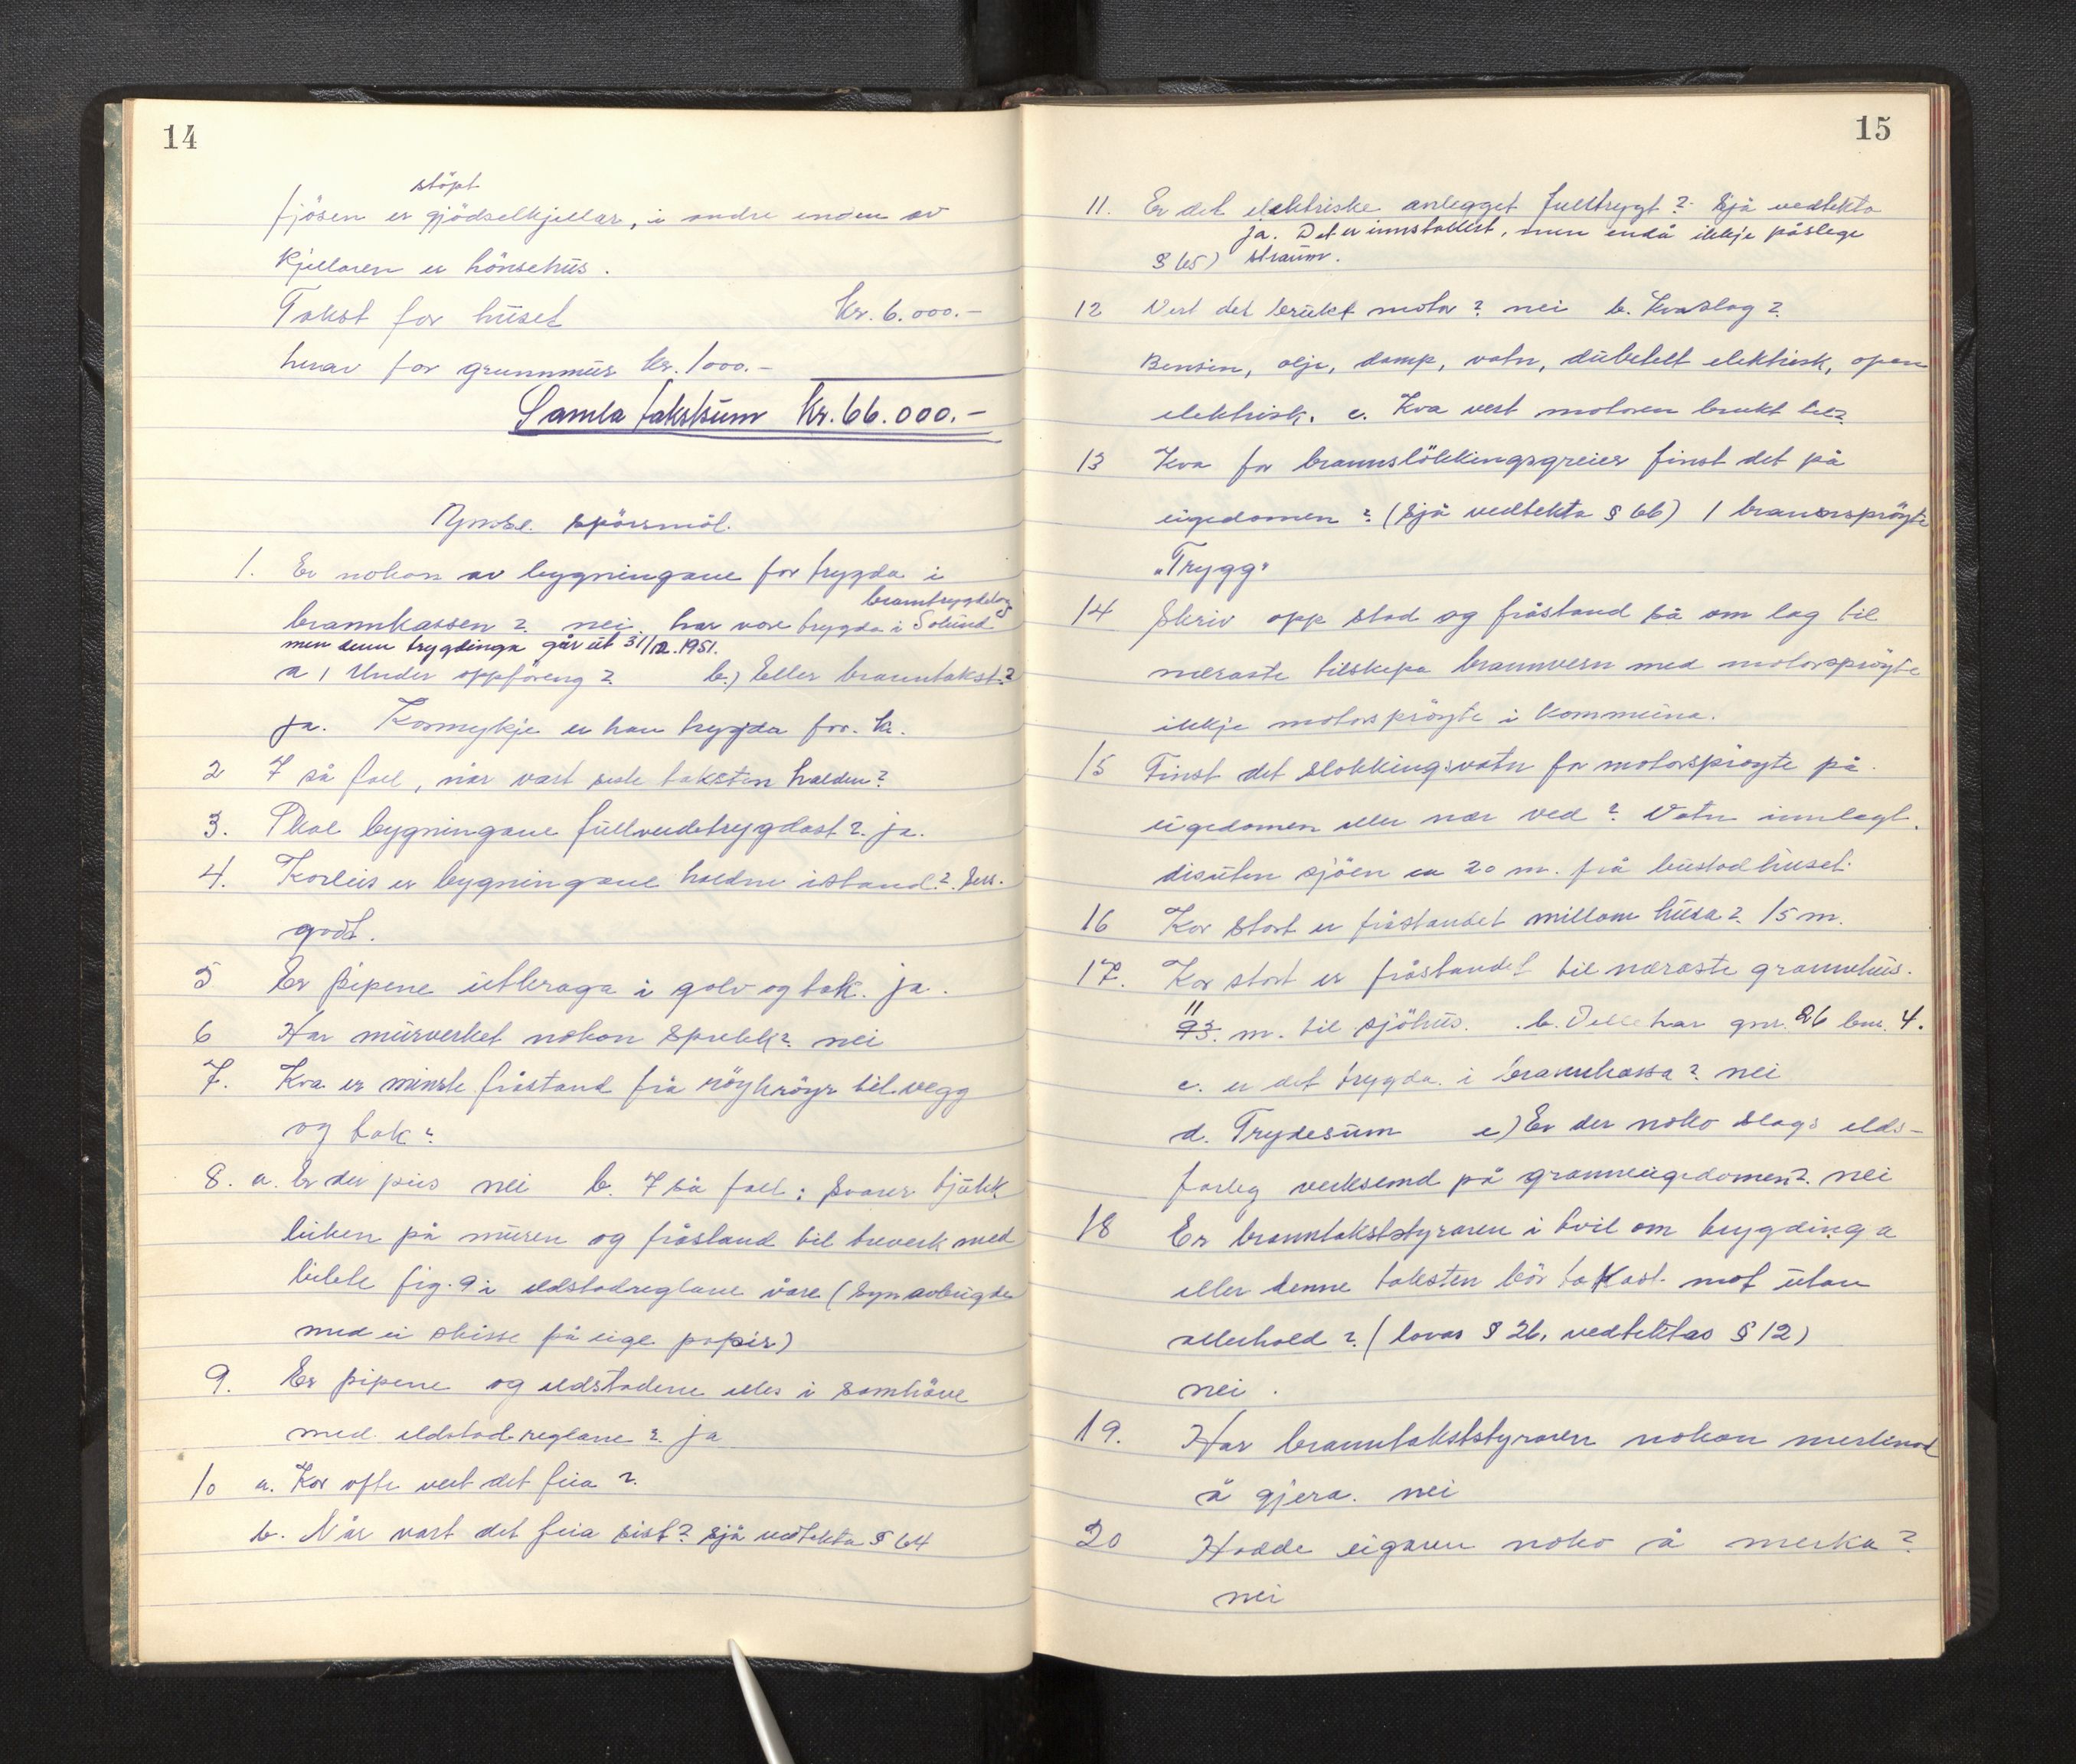 14
støpt
fjösen er gjödselkjellar, i andre enden av
kjellaren er hönsehus.
Takst for huset Kr. 6.000.-
herav for grunnmur kr. 1000.-
Samla takstsum Kr. 66.000.-
Ymse spörsmål.
1. Er nokon av bygningane for trygda i
branntrygdelag
brannkassen? nei, har vore trygda i Solund
men denne trygdinga går ut 31/12.1951.
a) Under oppföreng? b.) Eller branntakst?
ja. Kormykje er han trygda for. kr.
2 I så fall, når vart siste taksten halden?
3. Skal bygningane fullverdetrygdast? ja.
4. Korleis er bygningane haldne istand?
godt.
5 Er pipene utkraga i golv og tak. ja.
6 Har murverket nokon sprekk? nei
7. Kva er minste fråstand frå röykröyr til vegg
og tak?
8. a. Er der peis nei b. I så fall: svarer tjukk
leiken på muren og fråstand til treverk med
fig. 9 i eldstadreglane våre (Syn avbrigde
med ei skisse på eige papir)
9. Er pipene og eldstadene elles i samhöve
med eldstadreglane? ja
10 a. Kor ofte vert det feia?
b. Når vart det feia sist? sjå vedtekta § 64
15
11. Er det elektriske anlegget fulltrygt? Sjå vedtekta
ja. Det er innstallert, men endå ikkje påslege
§ 65) straum.
12 Vert det brukt motor? nei b. Kva slag?
Bensin, olje, damp, vatn, dubbelt elektrisk, open
elektrisk. c. Kva vert motoren brukt til?
13 Kva for brannslökkingsgreier finst det på
eigedomen? (Sjå vedtekta § 66) 1 brannspröyte
"Trygg"
14 Skriv opp stad og fråstand så om lag til
næraste tilskipa brannvern med motorspröyte
ikkje motorspröyte i kommuna.
15 Finst det slokkingsvatn for motorspröyte på
eigedomen eller nær ved? Vatn innlagt.
disutan sjöen ca 20 m. frå bustadhuset.
16 Kor stort er fråstandet millom husa? 15 m.
17. Kor stort er fråstandet til næraste grannehus.
11
93. m. til sjöhus. b. Dette har gnr. 86 bnr. 4.
c. er det trygda i brannkassa? nei
d. Trydesum e) Er der noko slags elds-
farleg verksemd på granneeigedomen? nei
18 Er branntakststyraren i tvil om trygdinga
eller denne taksten bör takast mot utan
atterhald? (lovas § 26, vedtektas § 12)
nei.
19. Har branntakststyraren nokon merknad
å gjera. nei
20 Hadde eigaren noko å merka?
nei